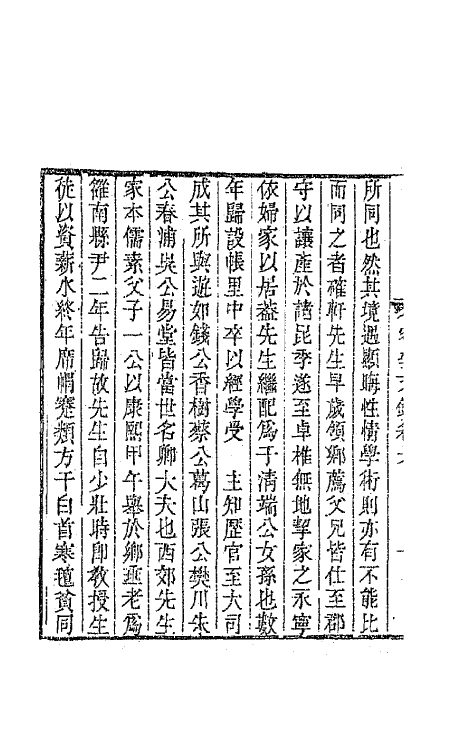 所同也然其境遇顯晦性情學術則亦有不能比
而同之者確軒先生早歲領鄉薦父兄皆仕至郡
守以讓產於諸昆季遂至卓椎無地挈家之永寧
依婦家以居葢先生繼配爲于清端公女孫也數
年歸設帳里中卒以經學受　主知歷官至大司
成其所與遊如錢公香樹蔡公葛山張公樊川朱
公春浦吳公易堂皆當世名卿大夫也西郊先生
家本儒素父子一公以康熙甲午舉於鄉垂老爲
雒南縣尹二年告歸故先生自少壯時卽教授生
徒以資薪水終年席帽蹇類方干白首寒氊貧同